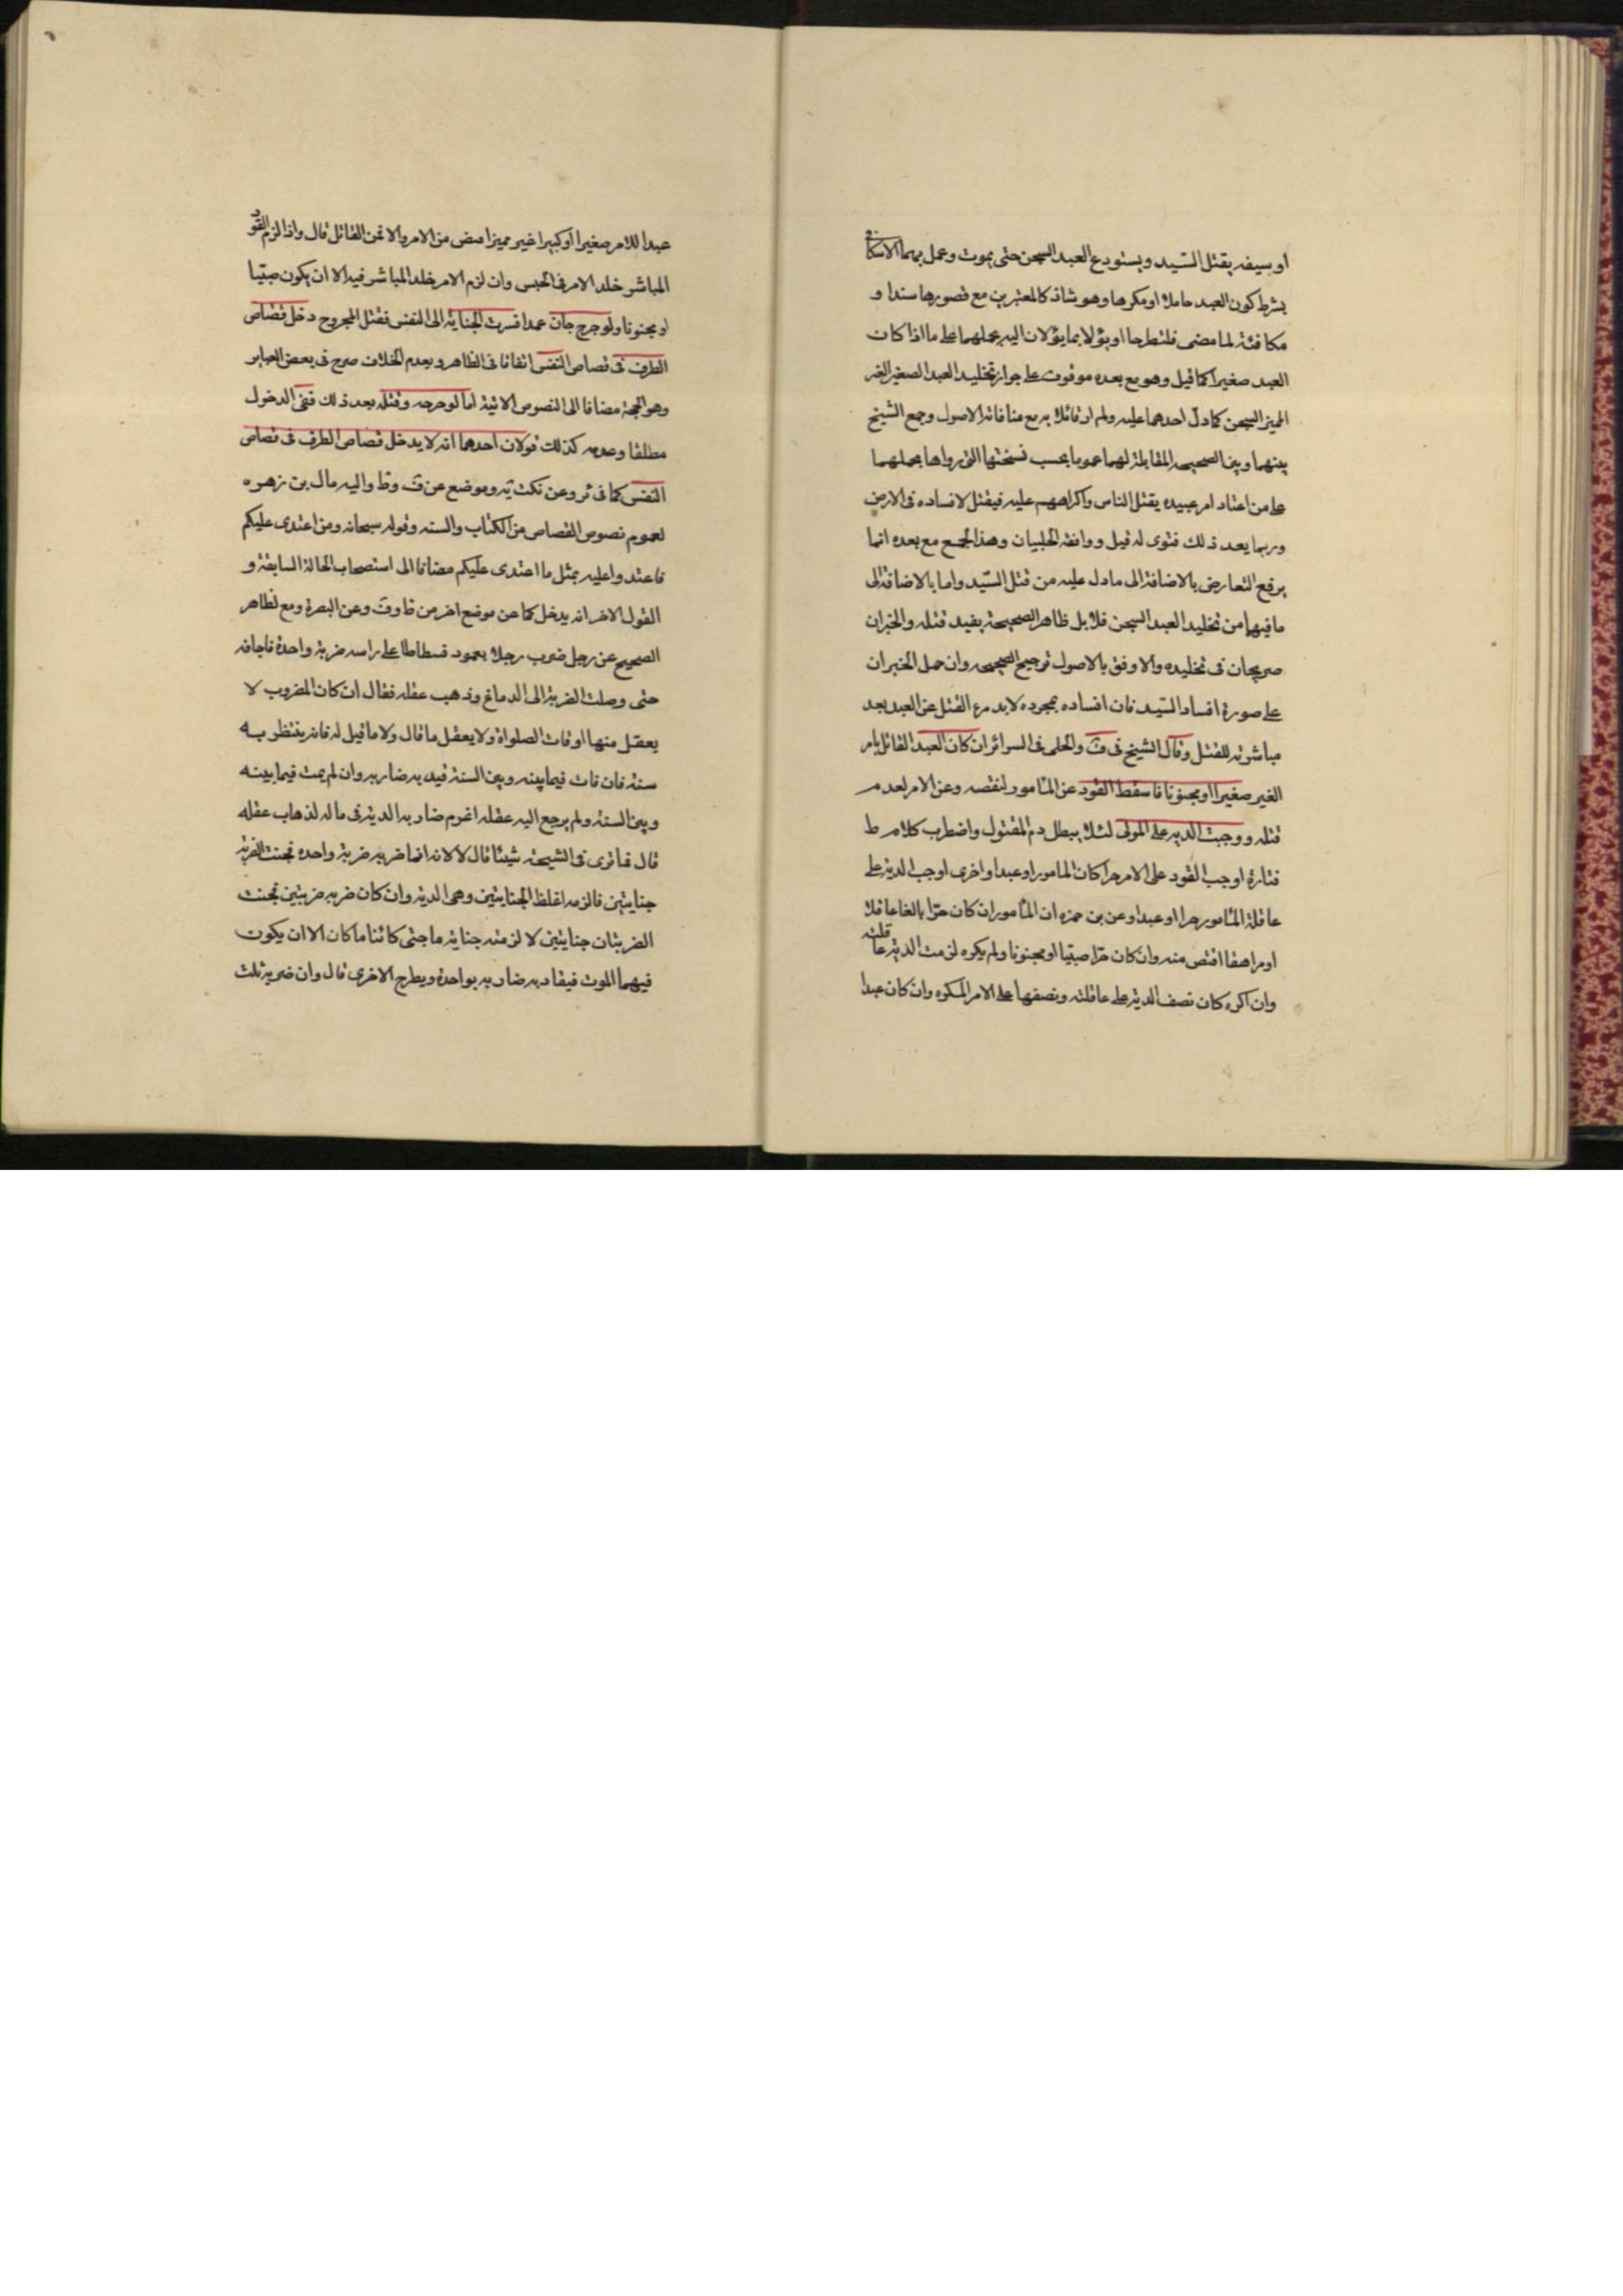 او سيفه يقتل السيد ويستودع العبد السجن حتى يموت وعمل بهما الاسكافى
بشرط كون العبد جاهلا او مكرها وهو شاذ كالمعتبرين مع قصورها سندا و
مكافئة لما مضى فلتطرحا او يؤلا بما يؤلان اليه بحملهما على ما اذا كان
العبد صغيرا كما قيل وهو مع بعده موقوف على جواز تخليد العبد الصغير الغير
المميز السجن كما دل احدهما عليه ولم ار قائلا به مع منافاته الاصول وجمع الشيخ
بينهما وبين الصحيحه المقابلة لهما عموما بحسب نسختها التى رواها بحملهما
على من اعتاد امر عبيده بقتل الناس واكراههم عليه فيقتل لافساده فى الارض
وربما يعد ذلك فتوى له قيل ووافقه الحلبيان وهذا الجمع مع بعده انما
يرفع التعارض بالاضافة الى ما دل عليه من قتل السيد واما بالاضافة الى
ما فيها من تخليد العبد السجن فلا بل ظاهر الصحيحة يفيد قتله والخبران
صريحان فى تخليده والاوفق بالاصول ترجيح الصحيحه وان حمل الخبران
على صورة افساد السيد فان افساده بمجرده لا يدرء القتل عن العبد بعد
مباشرته للقتل وقال الشيخ فى ف والحلى فى السرائر ان كان العبد القاتل بامر
الغير صغيرا او مجنونا فاسقط القود عن المامور لنقصه وعن الامر لعدم
قتله ووجبت الديه على المولى لئلا يبطل دم المقتول واضطرب كلام ط
فتارة اوجب القود على الامر حرا كان المامور او عبدا واخرى اوجب الدية على
عاقلة المأمور حرا او عبدا وعن بن حمزه ان المأمور ان كان حرا بالغا عاقلا
او مراهقا اقتص منه وان كان حرا صبيا او مجنونا ولم يكره لزمت الدية عاقلته
وان اكره كان نصف الدية على عاقلته ونصفها على الامر المكره وان كان عبدا
عبدا للامر صغيرا او كبيرا غير مميز اقتص من الامر والا فمن القاتل قال واذا لزم القود
المباشر خلد الامر فى الحبس وان لزم الامر خلد المباشر فيه الا ان يكون صبيا
او مجنونا ولو جرح جان عمدا فسرت الجناية الى النفس فقتل المجروح دخل قصاص
الطرف فى قصاص النفس اتفاقا فى الظاهر وبعدم الخلاف صرح فى بعض العباير
وهو الحجة مضافا الى النصوص الاتية اما لو جرحه وقتله بعد ذلك ففى الدخول
مطلقا وعدمه كذلك قولان احدهما انه لا يدخل قصاص الطرف فى قصاص
النفس كما فى ئر وعن نكت يه وموضع عن ف وط واليه مال بن زهره
لعموم نصوص القصاص من الكتاب والسنه وقوله سبحانه ومن اعتدى عليكم
فاعتدوا عليه بمثل ما اعتدى عليكم مضافا الى استصحاب الحالة السابقة و
القول الاخر انه يدخل كما عن موضع اخر من ط وف وعن التبصرة ومع لظاهر
الصحيح عن رجل ضرب رجلا بعمود فسطاط على راسه ضربة واحدة فاجافه
حتى وصلت الضربة الى الدماغ وذهب عقله فقال ان كان المضروب لا
يعقل منها اوقات الصلواة ولا يعقل ما قال ولا ما قيل له فانه ينتظر به
سنة فان مات فيما بينه وبين السنة قيد به ضاربه وان لم يمت فيما بينه
وبين السنة ولم يرجع اليه عقله اغرم ضاربه الدية فى ماله لذهاب عقله
قال فما ترى فى الشجة شيئا قال لا لانه انما ضربه ضربة واحده فجنت الضربة
جنايتين فالزمه اغلظ الجنايتين وهى الدية وان كان ضربه ضربتين فجنت
الضربتان جنايتين لالزمته جناية ما جنى كائنا ما كان الا ان يكون
فيهما الموت فيقاد به ضاربه بواحدة ويطرح الاخرى قال وان ضربه ثلث